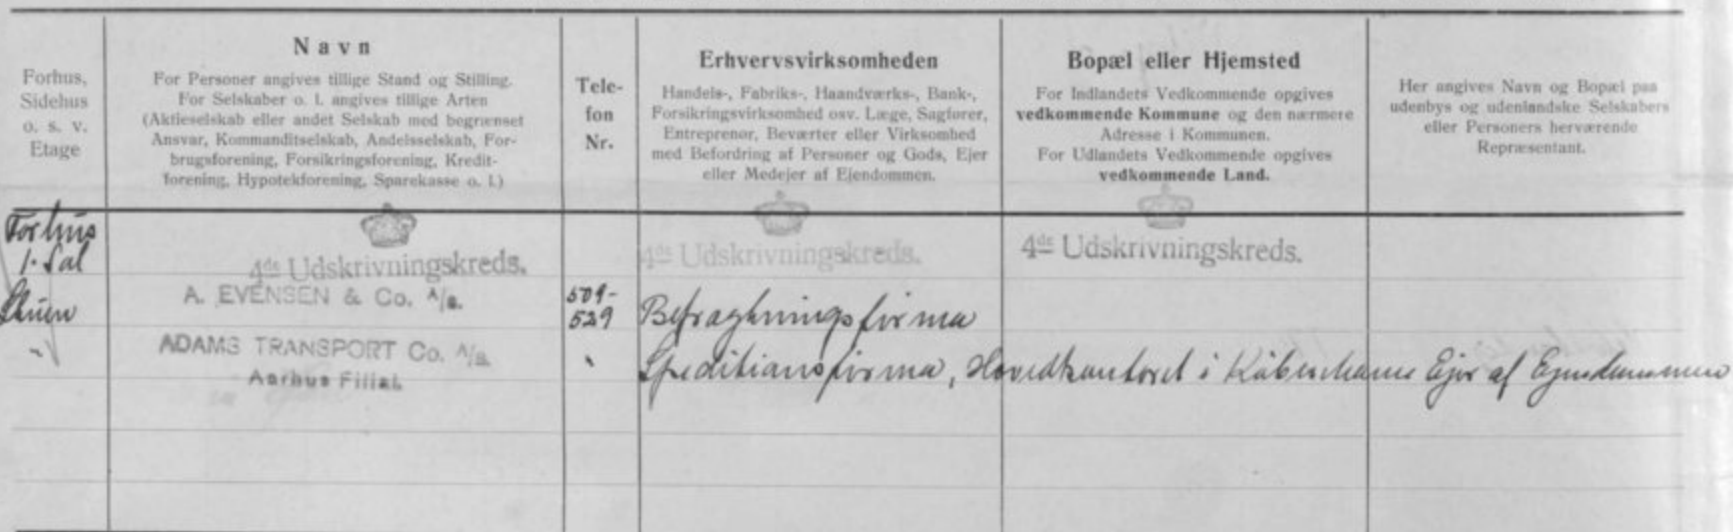 Forhus,
Sidehus
o. s. v.
Etage
Navn
For Personer angives tillige Stand og Stilling.
For Selskaber o. l. angives tillige Arten
(Aktieselskab eller andet Selskab med begrænset
Ansvar, Kommanditselskab, Andelsselskab, For-
brugsforening, Forsikringsforening, Kredit-
forening, Hypotekforening, Sparekasse o. l.)
Tele-
fon
Nr.
Erhvervsvirksomheden
Handels-, Fabriks-, Haandværks-, Bank-,
Forsikringsvirksomhed osv. Læge, Sagfører,
Entreprenør, Beværter eller Virksomhed
med Befordring af Personer og Gods, Ejer
eller Medejer af Ejendommen.
Bopæl eller Hjemsted
For Indlandets Vedkommende opgives
vedkommende Kommune og den nærmere
Adresse i Kommunen.
For Udlandets Vedkommende opgives
vedkommende Land.
Her angives Navn og Bopæl paa
udenbys og udenlandske Selskabers
eller Personers herværende
Repræsentant.
Forhus
1. Sal
4de Udskrivningskreds.
4de Udskrivningskreds.
4de Udskrivningskreds.
Stuen
A. EVENSEN & Co. A/s.
509-
529
Befragtningsfirma
"
ADAMS TRANSPORT Co. A/s
Aarhus Filial.
"
Speditionsfirma, Hovedkontoret i København Ejer af Ejendommen